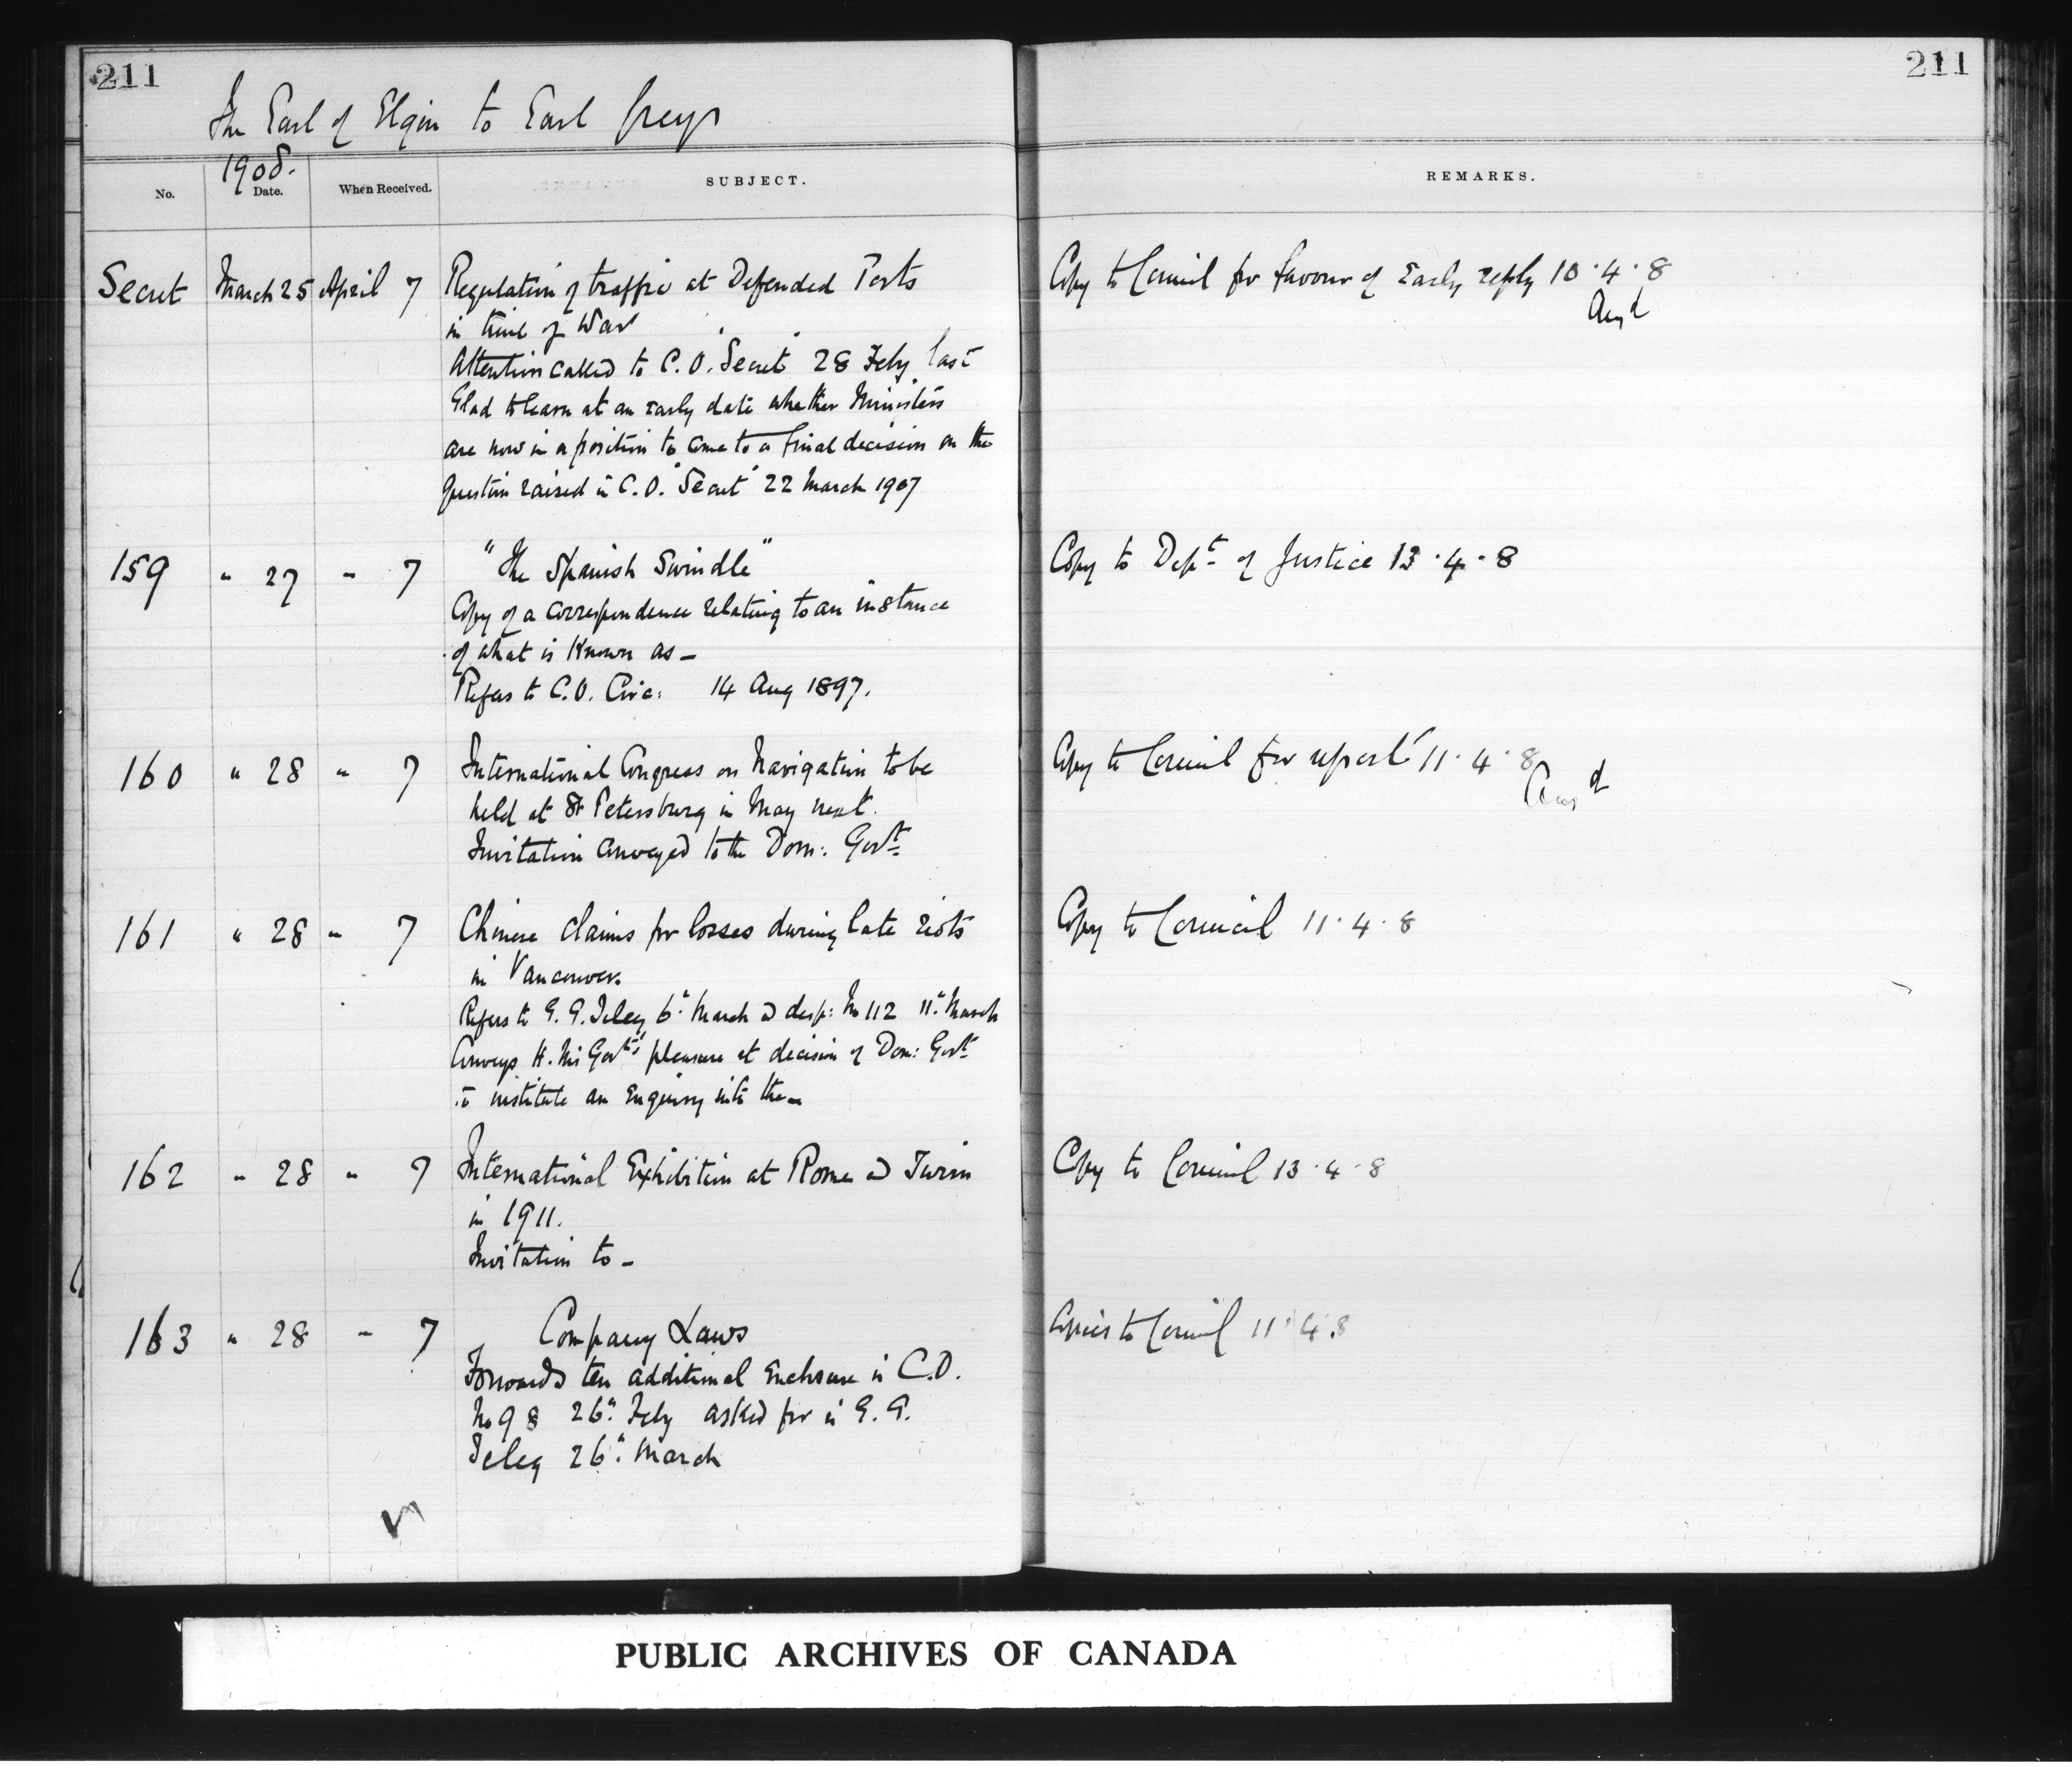 211
211
The Earl of Elgin to Earl Grey
1908.
No.
Date.
When Received.
SUBJECT.
REMARKS.
Secret March 25 April 7 Regulation of traffic at Defended Ports
in time of War
Attention called to C.O. "Secret" 28 Feby last
Glad to learn at an early date whether Ministers
are now in a position to come to a final decision on the
question raised in C.O. "Secret" 22 March 1907
Copy to Council for favour of early reply 10.4.8
Ansd
159 " 27 " 7 "The Spanish Swindle"
Copy of a correspondence relating to an instance
of what is known as -
Refers to C.O. Circ: 14 Aug 1897.
Copy to Dept of Justice 13.4.8
160 " 28 " 7 International Congress on Navigation to be
held at St Petersburg in May next.
Invitation conveyed to the Dom: Govt
Copy to Council for report 11.4.8
Ansd
161 " 28 " 7 Chinese claims for losses during late riots
in Vancouver.
Refers to G.G. Teleg 6" March & desp: No 112 11" March
Conveys H. Ms Govts' pleasure at decision of Dom: Govt
to institute an Enquiry into the -
Copy to Council 11.4.8
162 " 28 " 7 International Exhibition at Rome & Turin
in 1911.
Invitation to -
Copy to Council 13.4.8
163 " 28 " 7 Company Laws
Forwards ten additional Enclosure in C.O.
No 98 26" Feby asked for in G.G.
Teleg 26" March
Copies to Council 11.4.8
PUBLIC ARCHIVES OF CANADA